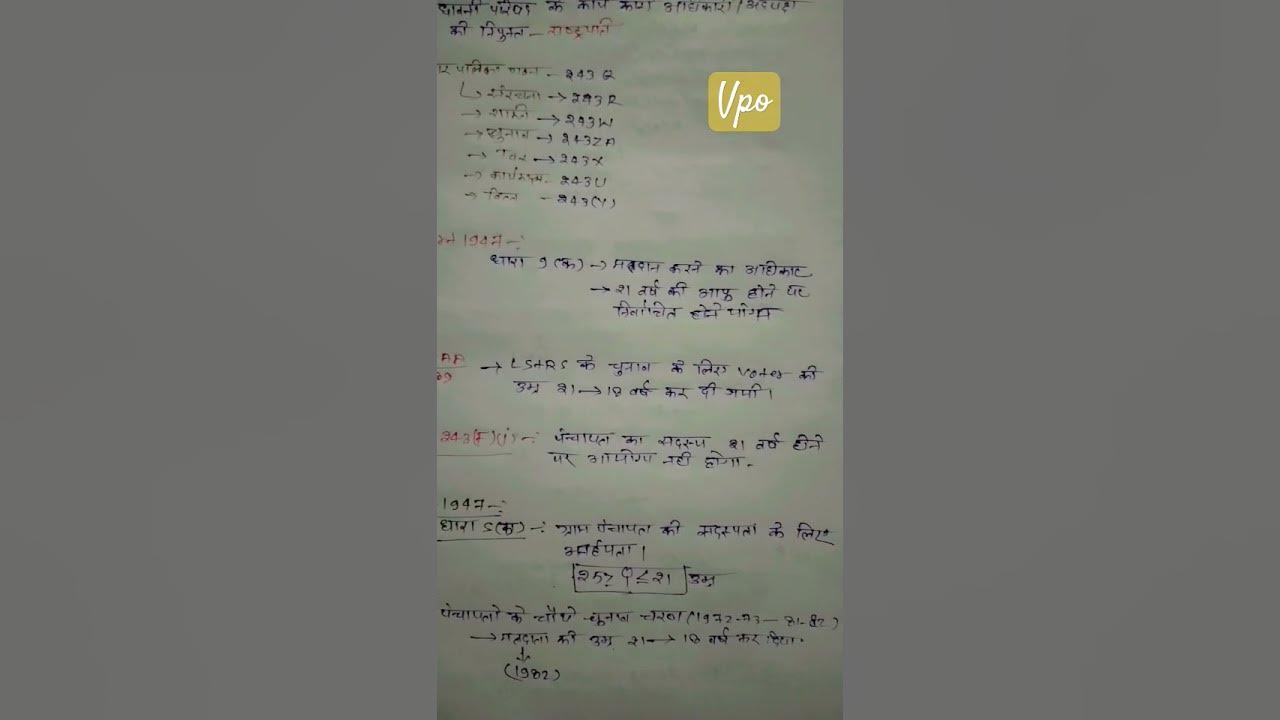 छावनी परिषद के कार्य करण अधिकारी / अध्यक्ष
की नियुक्त – राष्ट्रपति
Vpo
पालिका गठन – 243 Q
संरचना → 243 R
→ शक्ति → 243 W
→ चुनाव → 243ZA
→ कर → 243X
→ कार्यकाल – 243 U
→ वित्त – 243(Y)
1947 –:
धारा 9 (क) → मतदान करने का अधिकार
→ 21 वर्ष की आयु होने पर
निर्वाचित होने योग्य
→ LS+RS के चुनाव के लिए Voter की
उम्र 21 → 18 वर्ष कर दी गयी।
243(F)(1) –: पंचायत का सदस्य 21 वर्ष होने
पर अयोग्य नही होगा.
1947 –:
धारा 5(क) –: ग्राम पंचायत की सदस्यता के लिए
अर्हयता।
उम्र
पंचायतो के चौथे चुनाव चरण (1972-73 – 81-82)
→ मतदाता की उम्र 21 → 18 वर्ष कर दिया.
(1982)